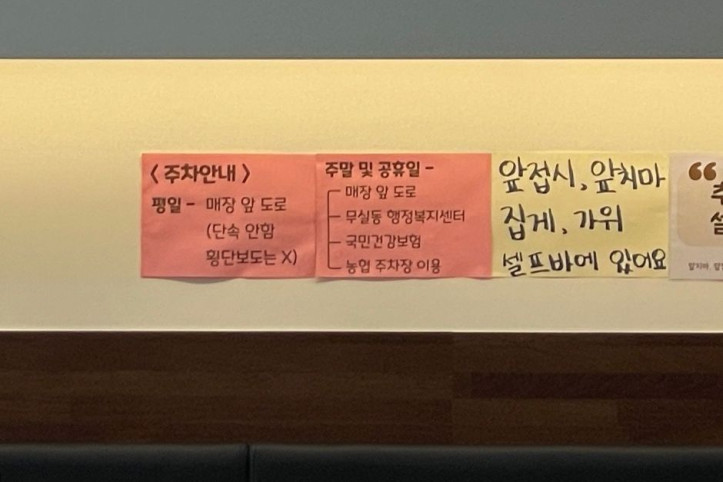 〈 주차안내 〉
평일 - 매장 앞 도로
(단속 안함
횡단보도는 X)
주말 및 공휴일 -
매장 앞 도로
무실동 행정복지센터
국민건강보험
농협 주차장 이용
앞접시, 앞치마
집게, 가위
셀프바에 있어요
“